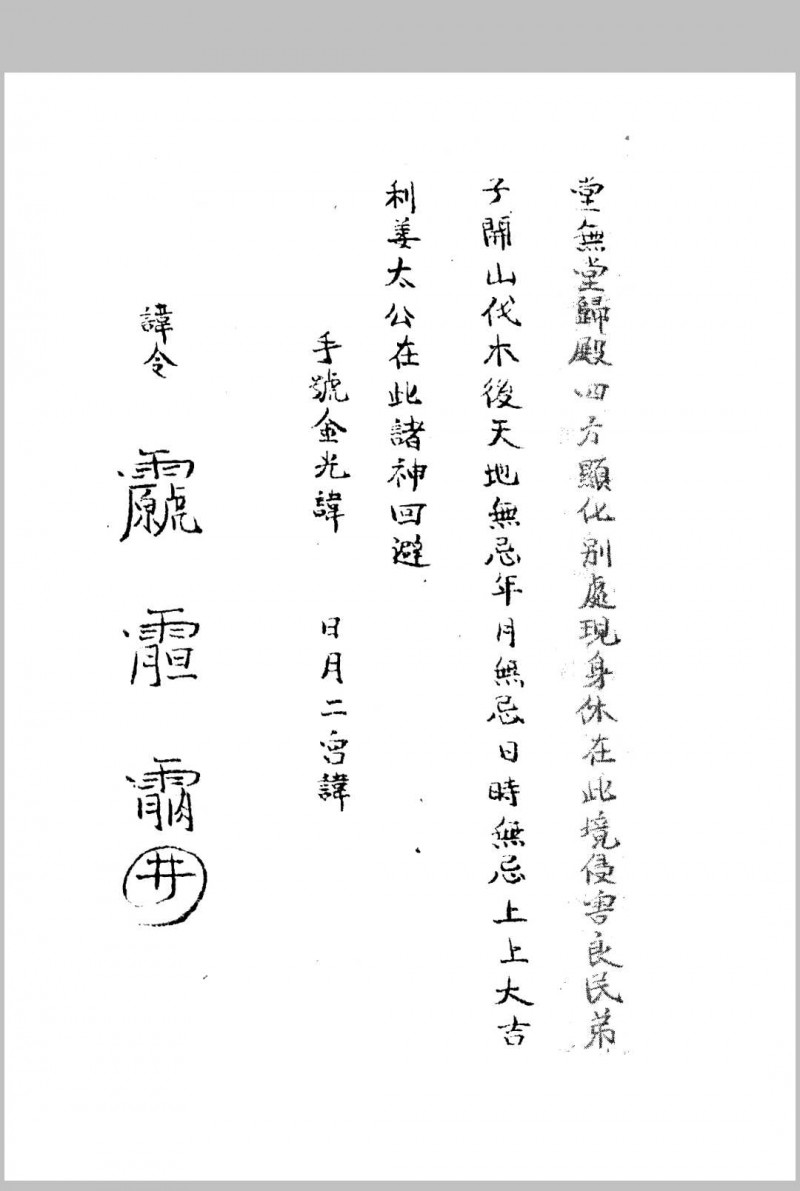 堂無堂歸殿四方顯化别處現身休在此境侵害良民弟
子開山伐木後天地無忌年月無忌日時無忌上上大吉
利姜太公在此諸神回避
手號金光諱 日月二宮諱
諱令
井